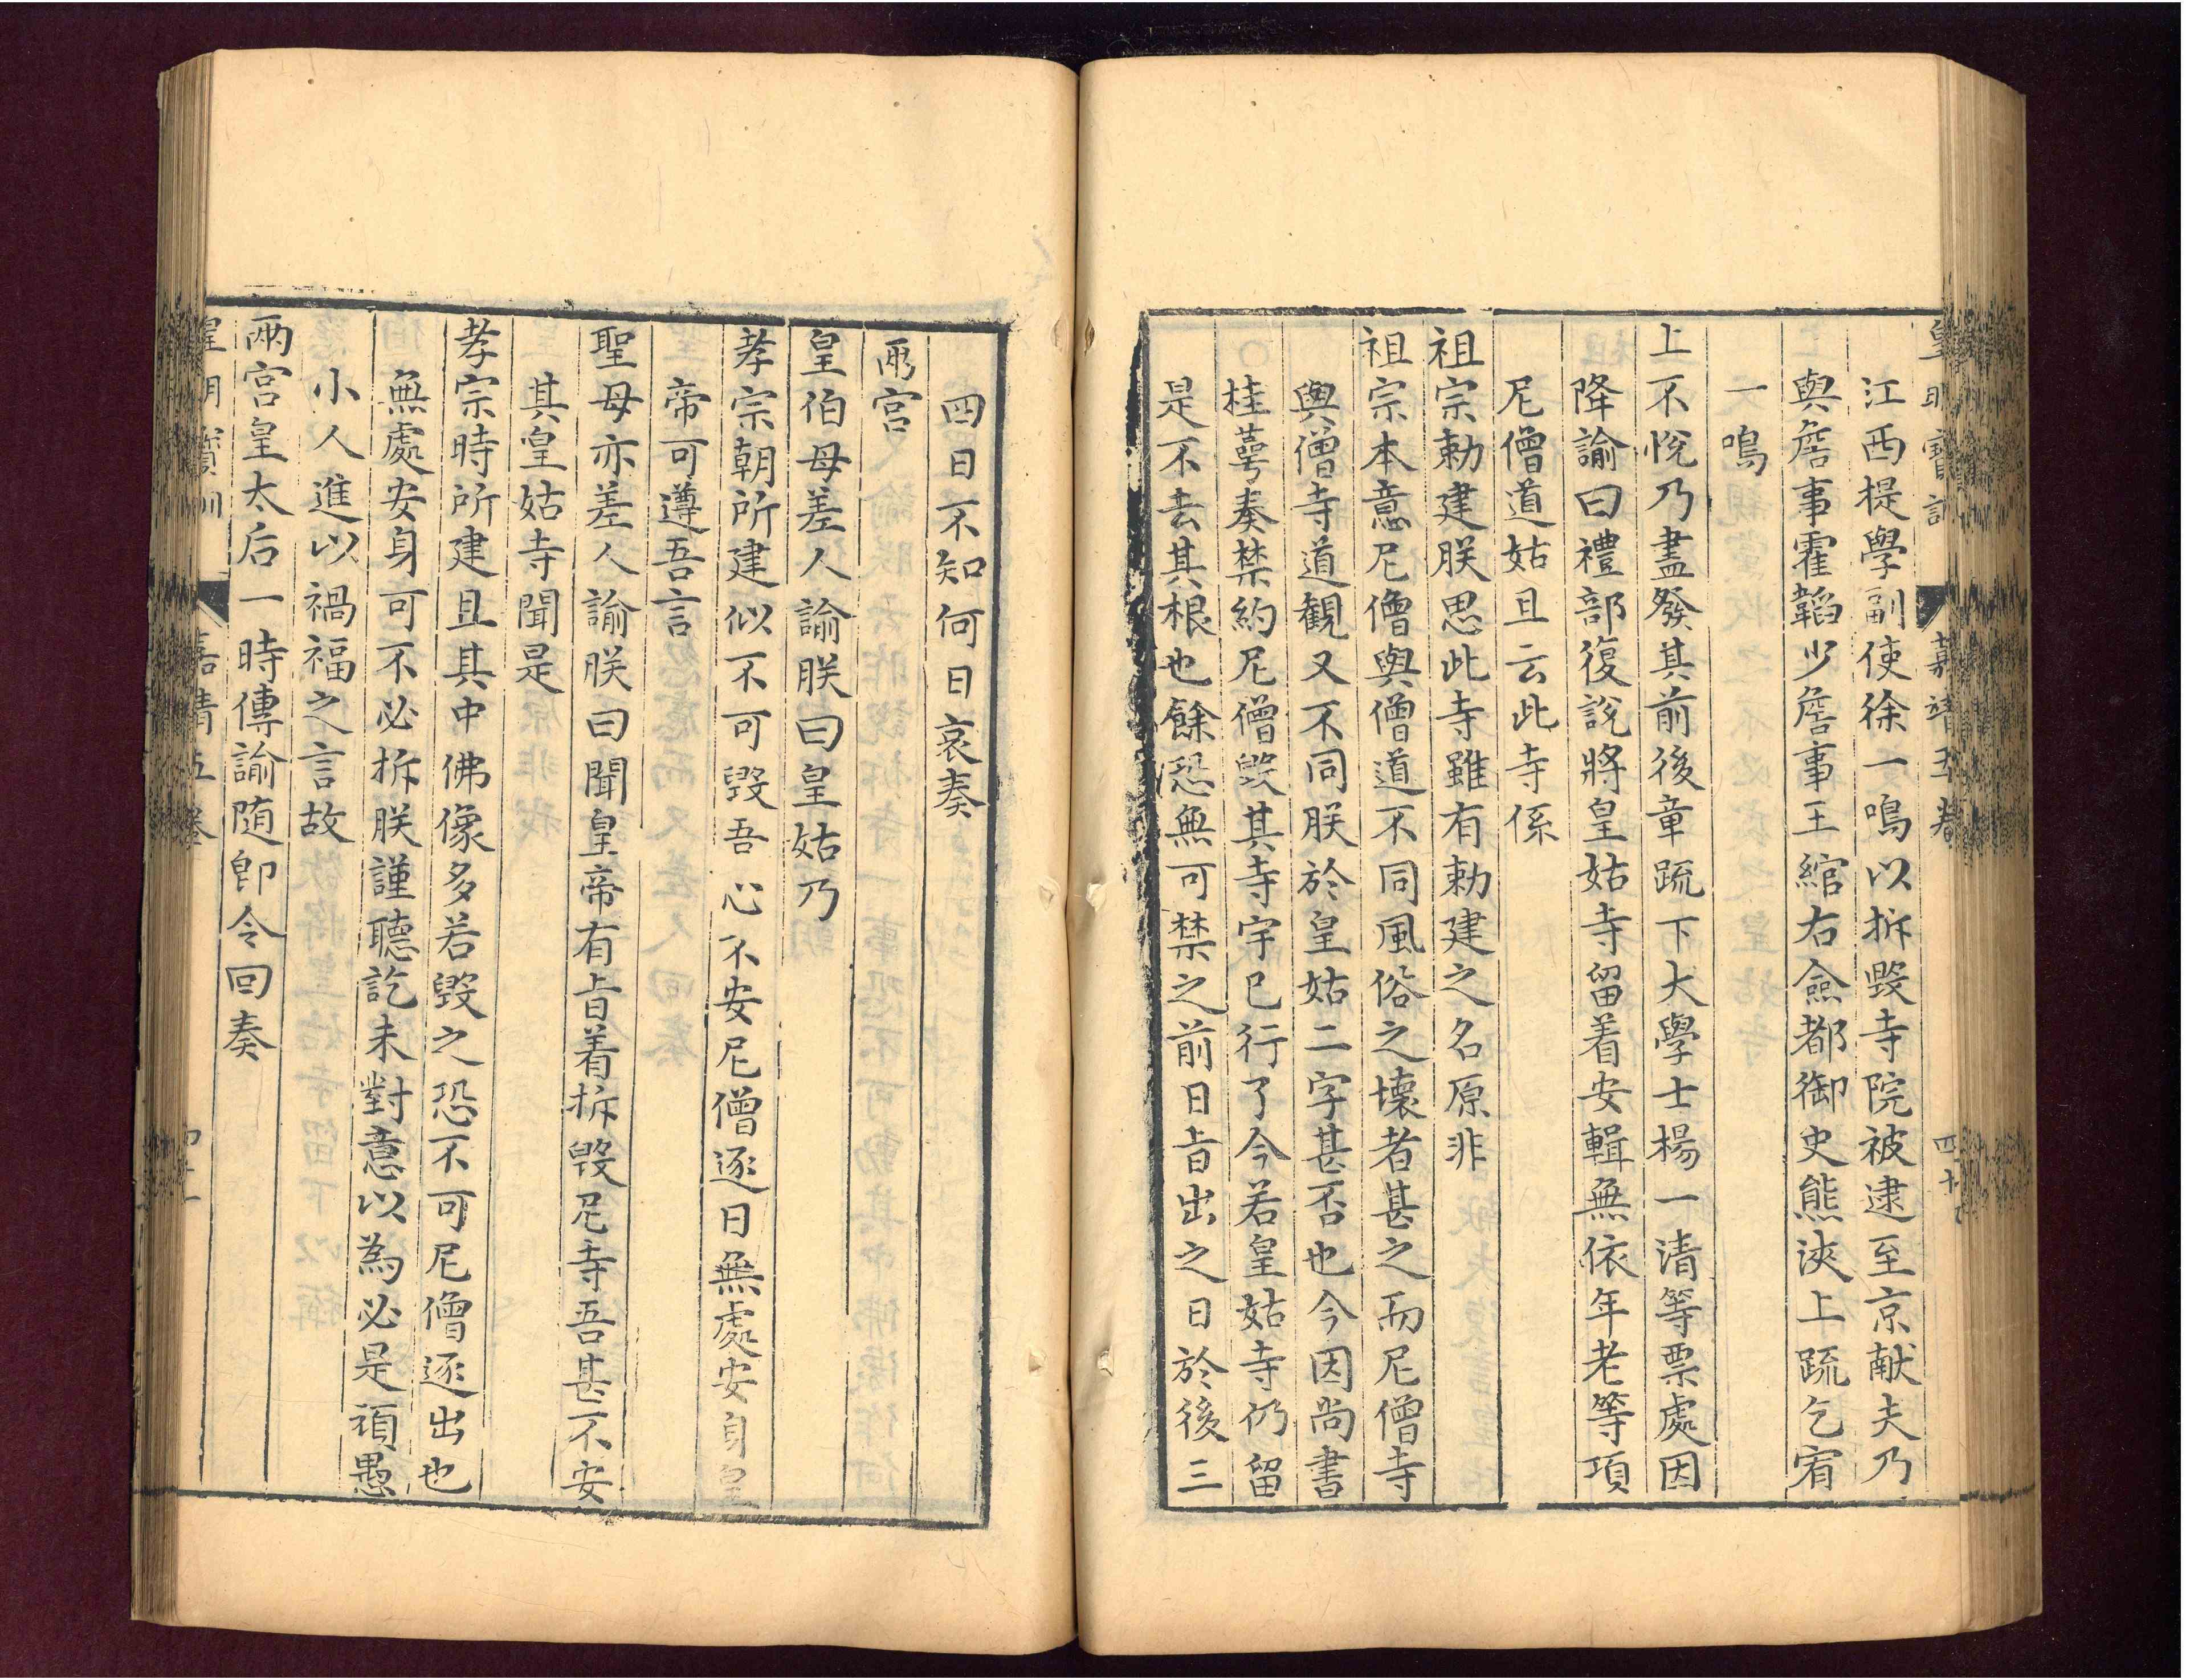 皇明寶訓 嘉靖五卷 四十
江西提學副使徐一鳴以拆毀寺院被逮至京献夫乃
與詹事霍韜少詹事王綰右僉都御史熊浹上疏乞宥
一鳴
上不悅乃盡發其前後章疏下大學士楊一清等票處因
降諭曰禮部復說將皇姑寺留着安輯無依年老等項
尼僧道姑且云此寺係
祖宗勅建朕思此寺雖有勅建之名原非
祖宗本意尼僧與僧道不同風俗之壞者甚之而尼僧寺
與僧寺道觀又不同朕於皇姑二字甚否也今因尚書
桂萼奏禁約尼僧毀其寺宇已行了今若皇姑寺仍留
是不去其根也餘恐無可禁之前日旨出之日於後三
四日不知何日哀奏
兩宮
皇伯母差人諭朕曰皇姑乃
孝宗朝所建似不可毀吾心不安尼僧逐日無處安身皇
帝可遵吾言
聖母亦差人諭朕曰聞皇帝有旨着拆毀尼寺吾甚不安
其皇姑寺聞是
孝宗時所建且其中佛像多若毀之恐不可尼僧逐出也
無處安身可不必拆朕謹聽訖未對意以為必是頑愚
小人進以禍福之言故
兩宮皇太后一時傳諭随即令回奏
皇明寶訓 嘉靖五卷